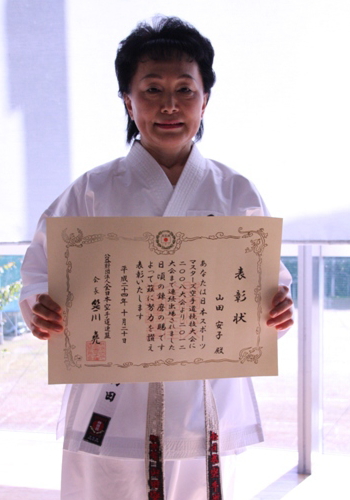 表彰状
山田 安子 殿
あなたは日本スポーツ
マスターズ空手道競技大会に
二〇〇八大会より二〇一二
大会まで連続出場されました
日頃の錬磨の賜です
よって茲に努力を讃え
表彰いたします
平成二十四年十月二十日
公益財団法人全日本空手道連盟
会長 笹川 堯
田